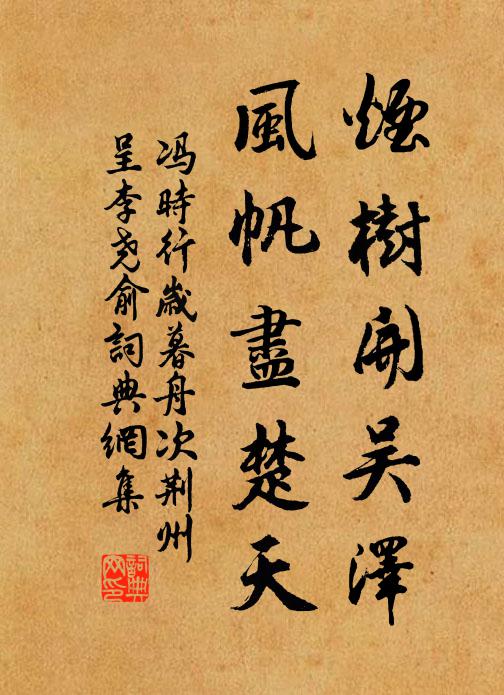 煙樹開吳澤
風帆盡楚天
冯時行歲暮舟次荆州
呈李尧俞詞典網集
詞典网印